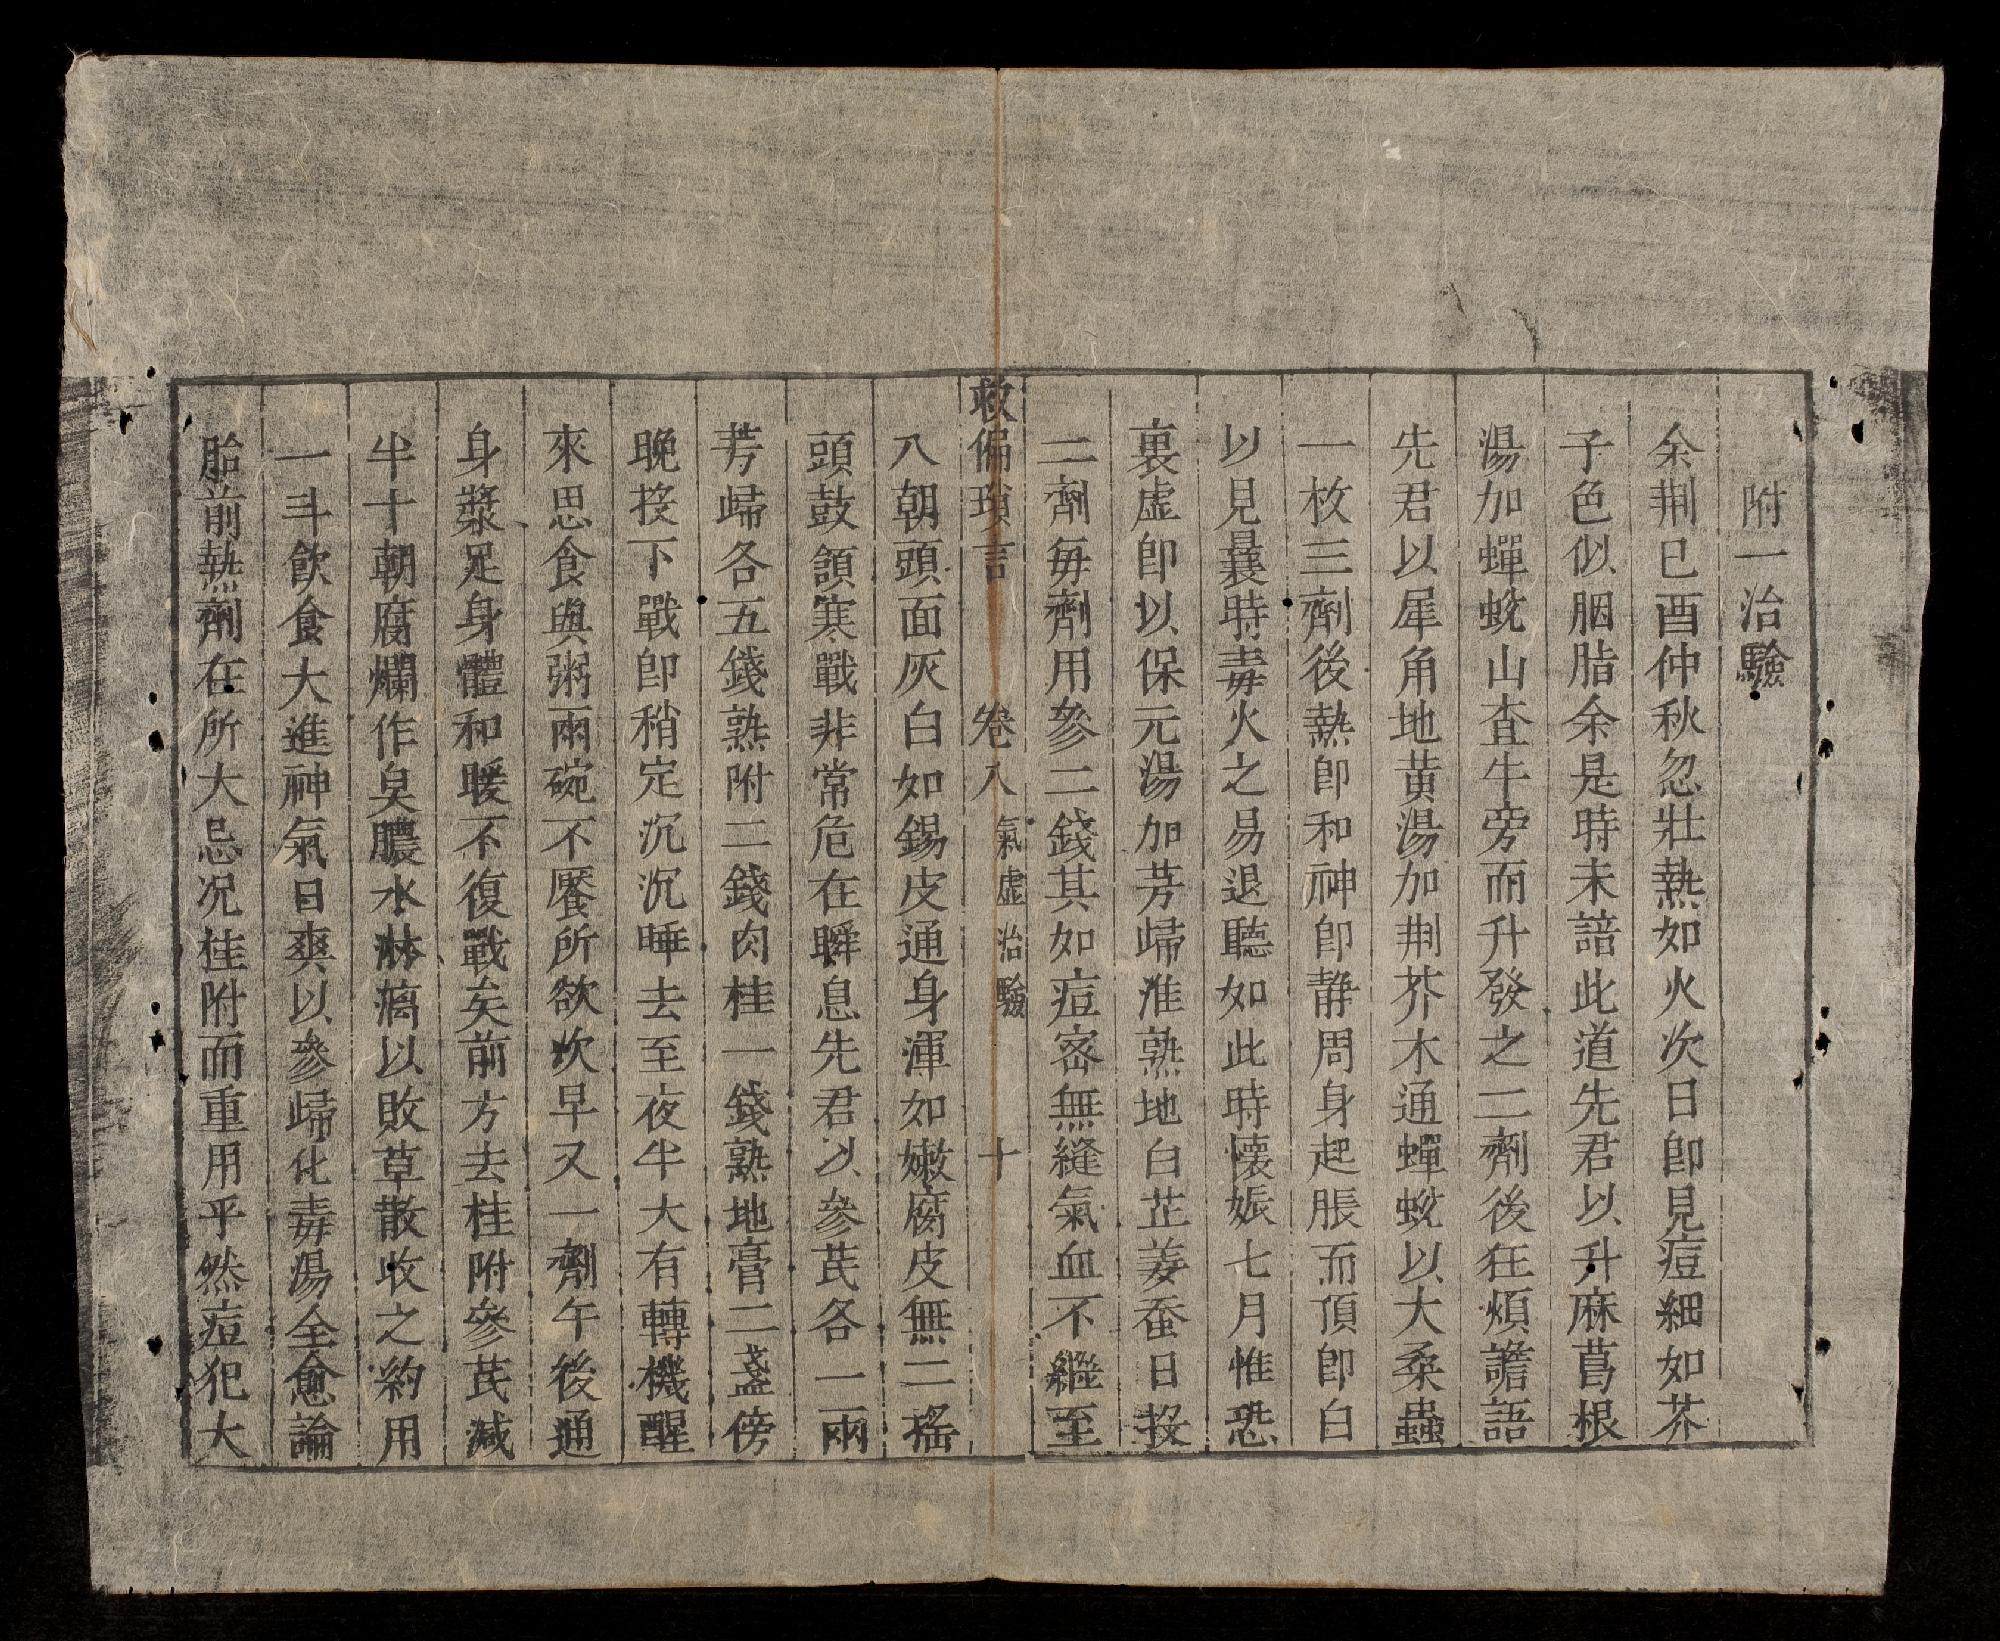 附一治驗
余荆已酉仲秋忽壯熱如火次日卽見痘細如芥
子色似胭脂余是時未諳此道先君以升麻葛根
湯加蟬蛻山查牛旁而升發之二劑後狂煩譫語
先君以犀角地黄湯加荆芥木通蟬蛻以大桑蟲
一枚三劑後熱卽和神卽静周身起脹而頂卽白
以見曩時毒火之易退聽如此時懷娠七月惟恐
裏虚卽以保元湯加芎歸淮熟地白芷姜蚕日投
二劑每劑用參二錢其如痘宻無縫氣血不繼至
救偏瑣言 卷八 氣虚治驗 十
八朝頭面灰白如錫皮通身渾如嫩腐皮無二搖
頭鼓頷寒戰非常危在瞬息先君以參芪各一兩
芎歸各五錢熟附二錢肉桂一錢熟地膏二盞傍
晚投下戰卽稍定沉沉睡去至夜半大有轉機醒
來思食與粥兩碗不饜所欲次早又一劑午後通
身漿足身體和暖不復戰矣前方去桂附參芪減
半十朝腐爛作臭膿水淋漓以敗草散收之約用
一斗飲食大進神氣日爽以參歸化毒湯全愈論
胎前熱劑在所大忌况桂附而重用乎然痘犯大